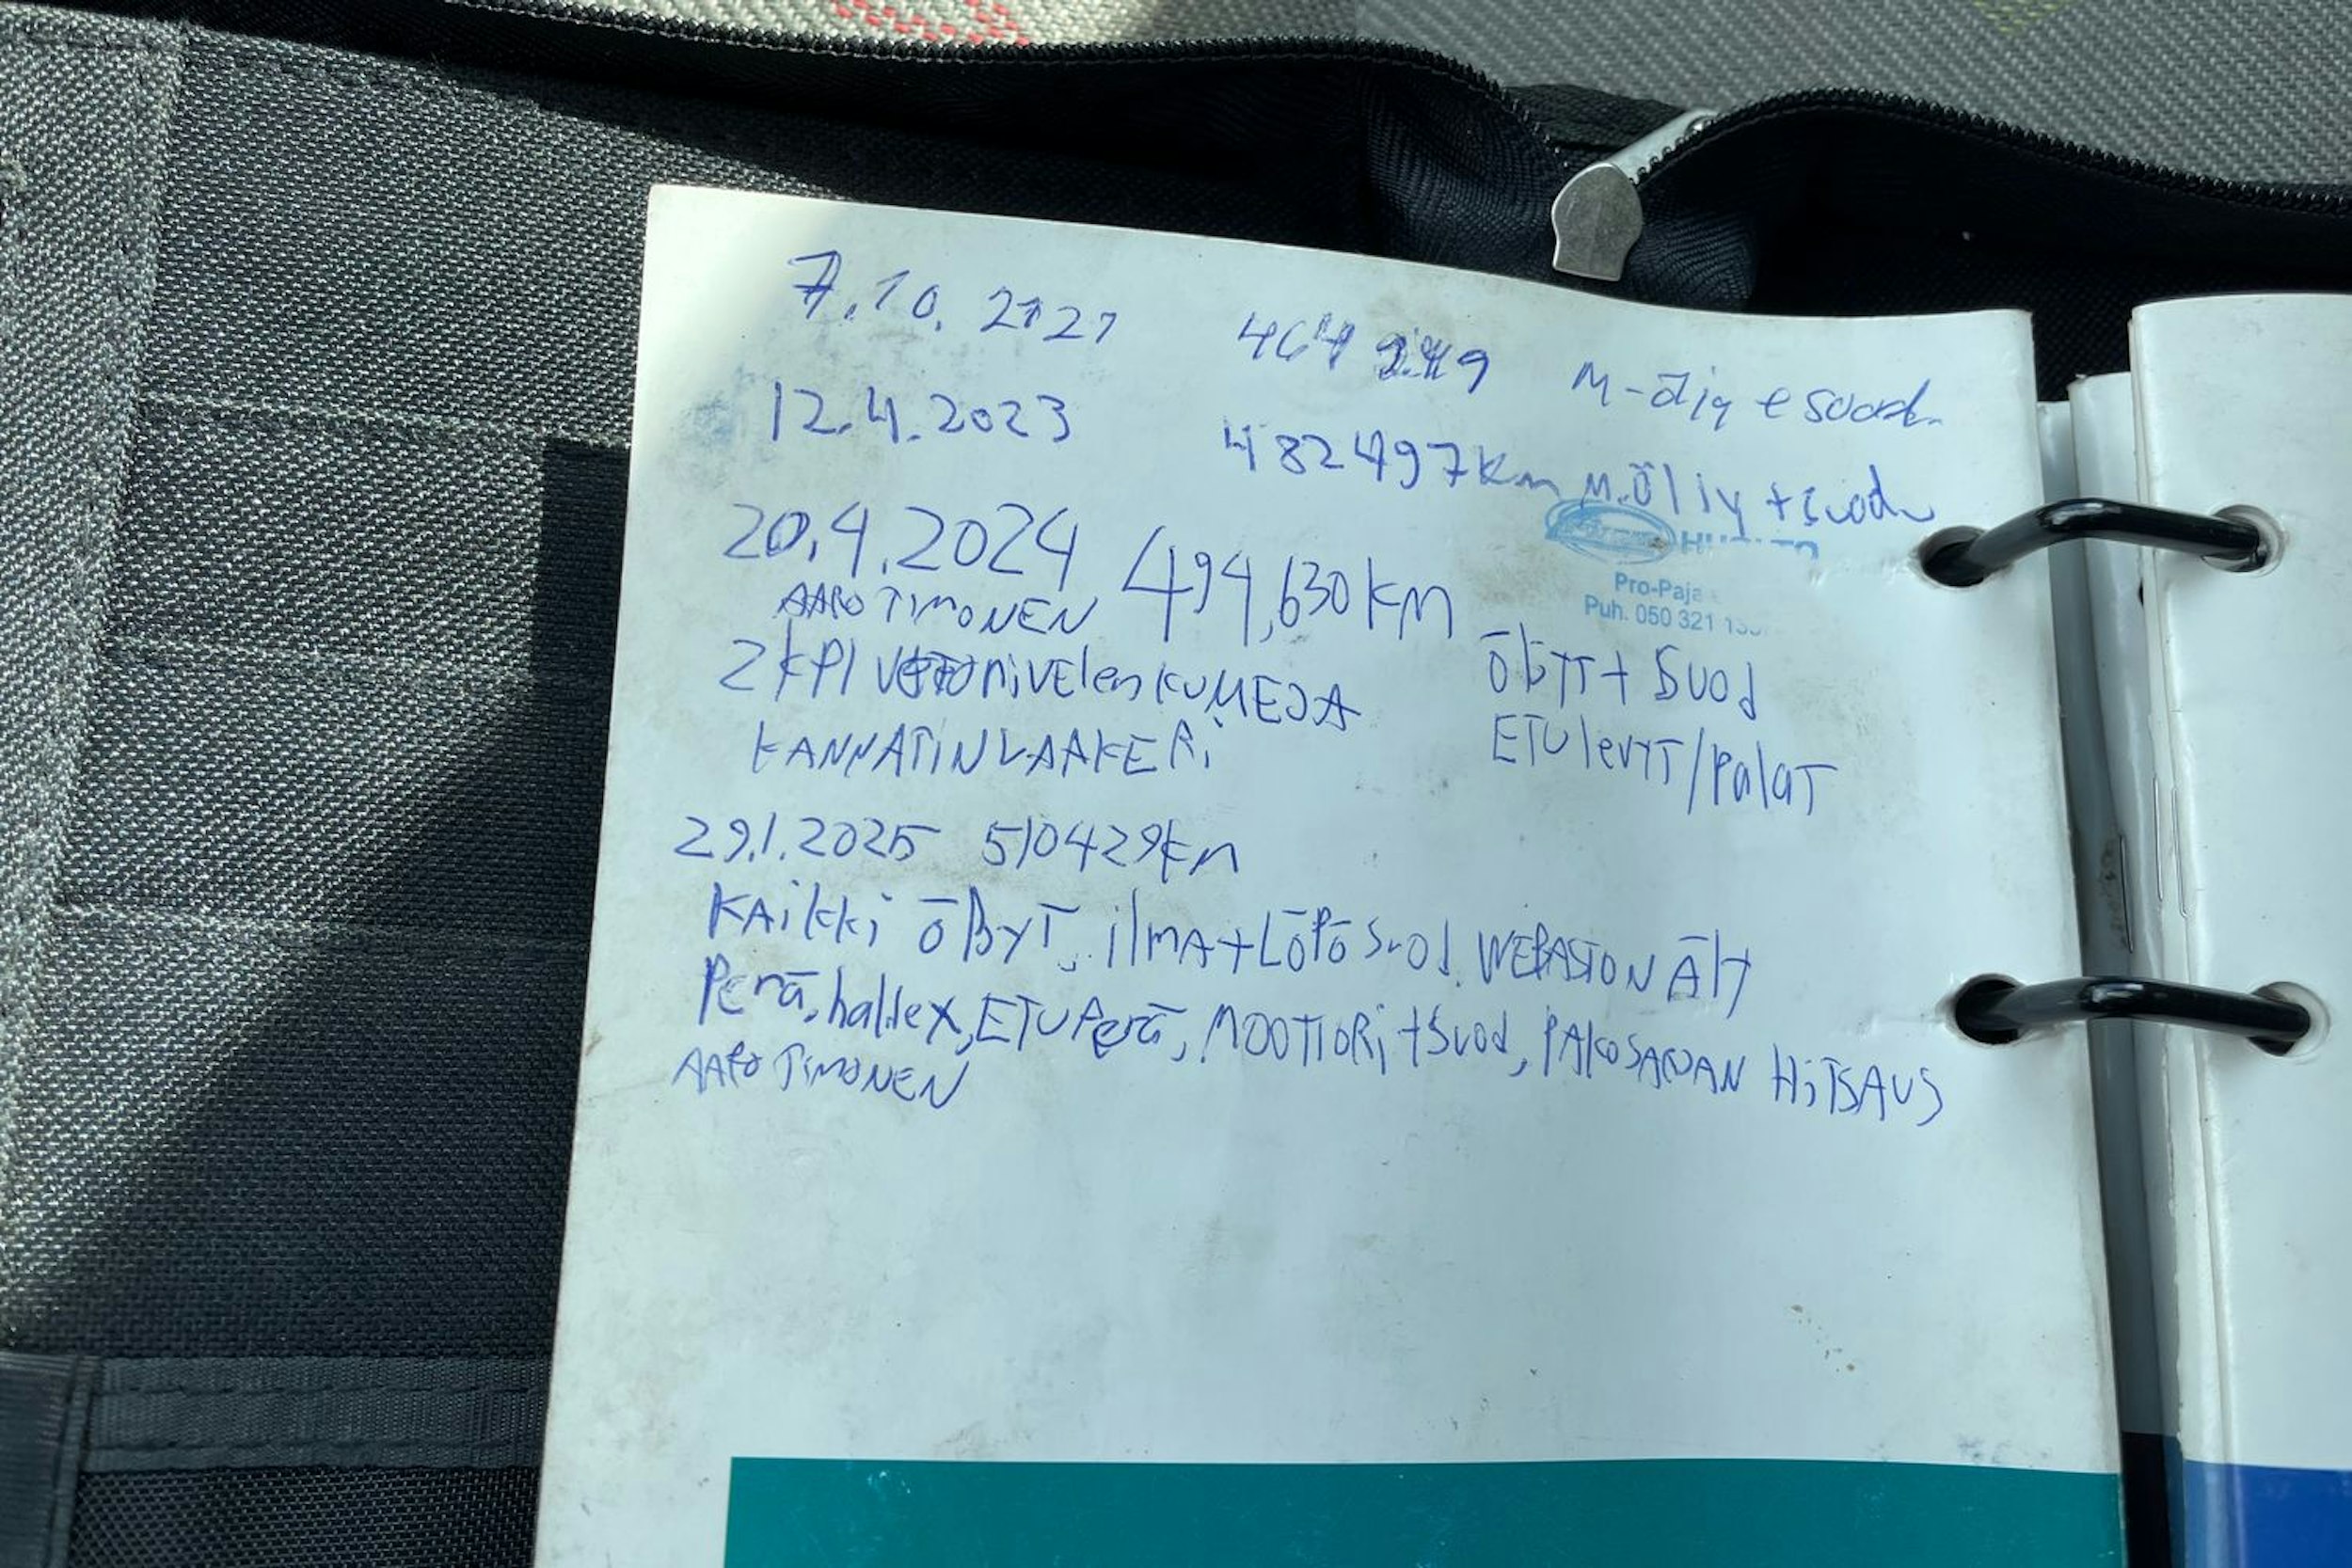 7.10.2121 M-öljy
12.4.2023 482497km M.öljy + suod
20.4.2024 494,630 KM
HUOLTO
Pro-Paja
AARO TIMONEN
Puh. 050 321
2 KPL VETONiVElen KUMEJA ÖljyT + Suod
KANNATINLAAKERi ETUlevyT/PalaT
29.1.2025 510429km
KAikki ÖljyT, ilMA+LÖPÖ Suod. WEBASTON
Perä, haldex, ETUPerä, MOOTTORi +Suod, PAKOSARJAN HiTSAUS
AARO TIMONEN